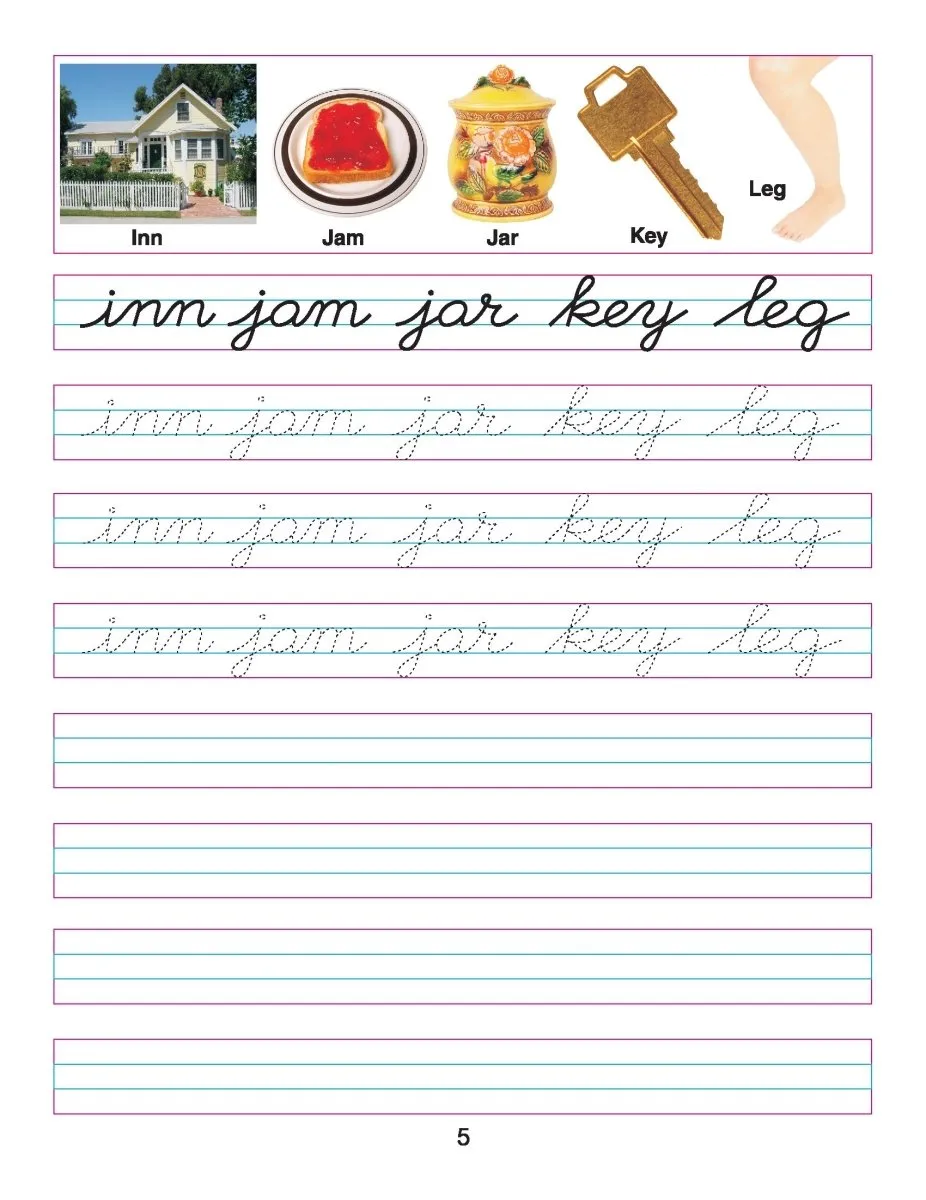 Inn Jam Jar Key Leg
inn jam jar key leg
inn jam jar key leg
inn jam jar key leg
inn jam jar key leg
5